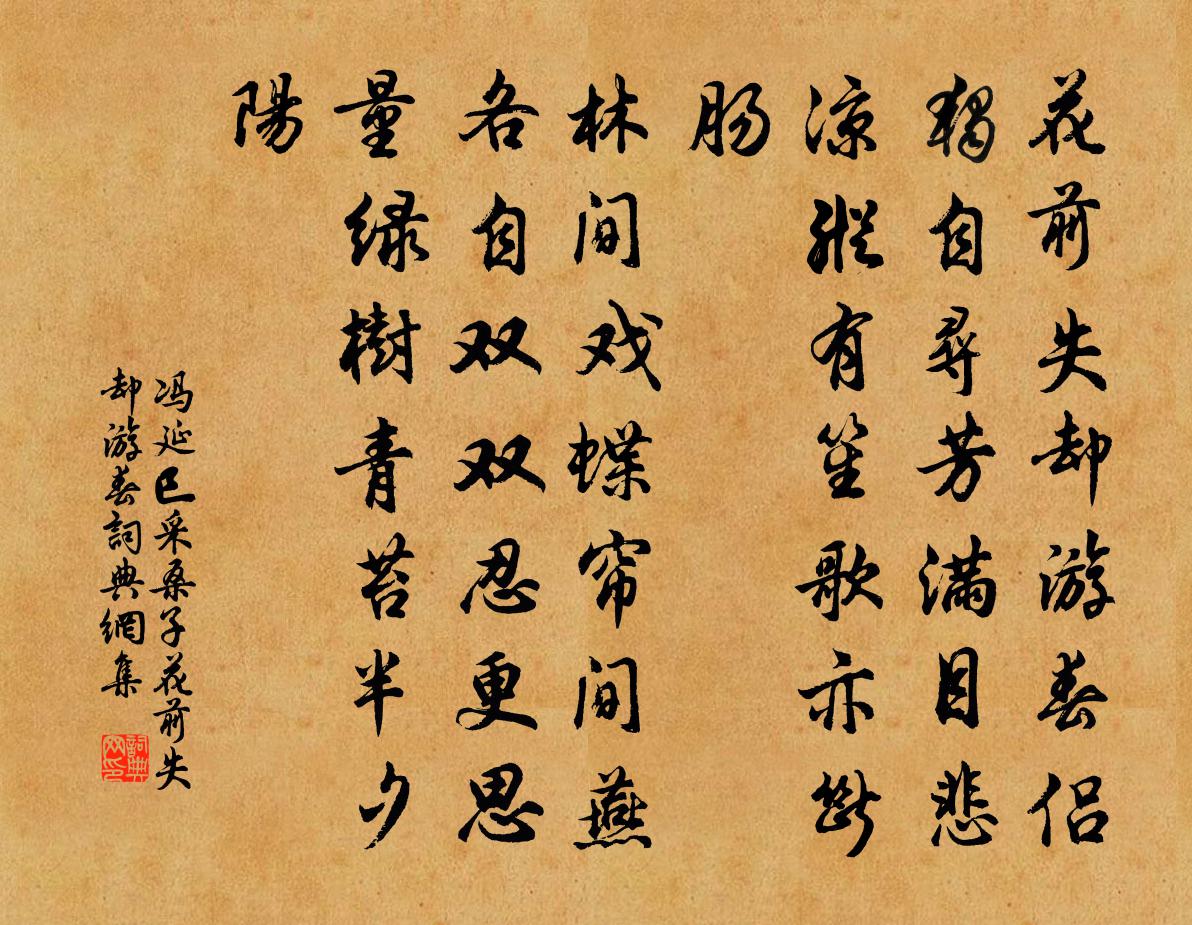 花前失却游春侣
獨自尋芳满目悲
凉縱有笙歌亦斷
肠
林间戏蝶帘间燕
各自双双忍更思
量绿樹青苔半夕
陽
冯延巳采桑子花前失
却游春詞典網集
詞典
网印